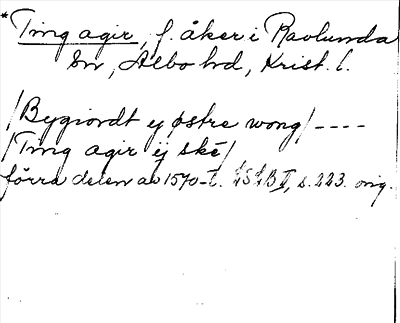 *Ting agir, f. åker i Ravlunda
sn, Albo hd, Krist. l.
/Bygiordt ej østre wong/ ----
/Ting agir ij ské/
förra delen av 1570-t. LSLB II, s. 223. orig.